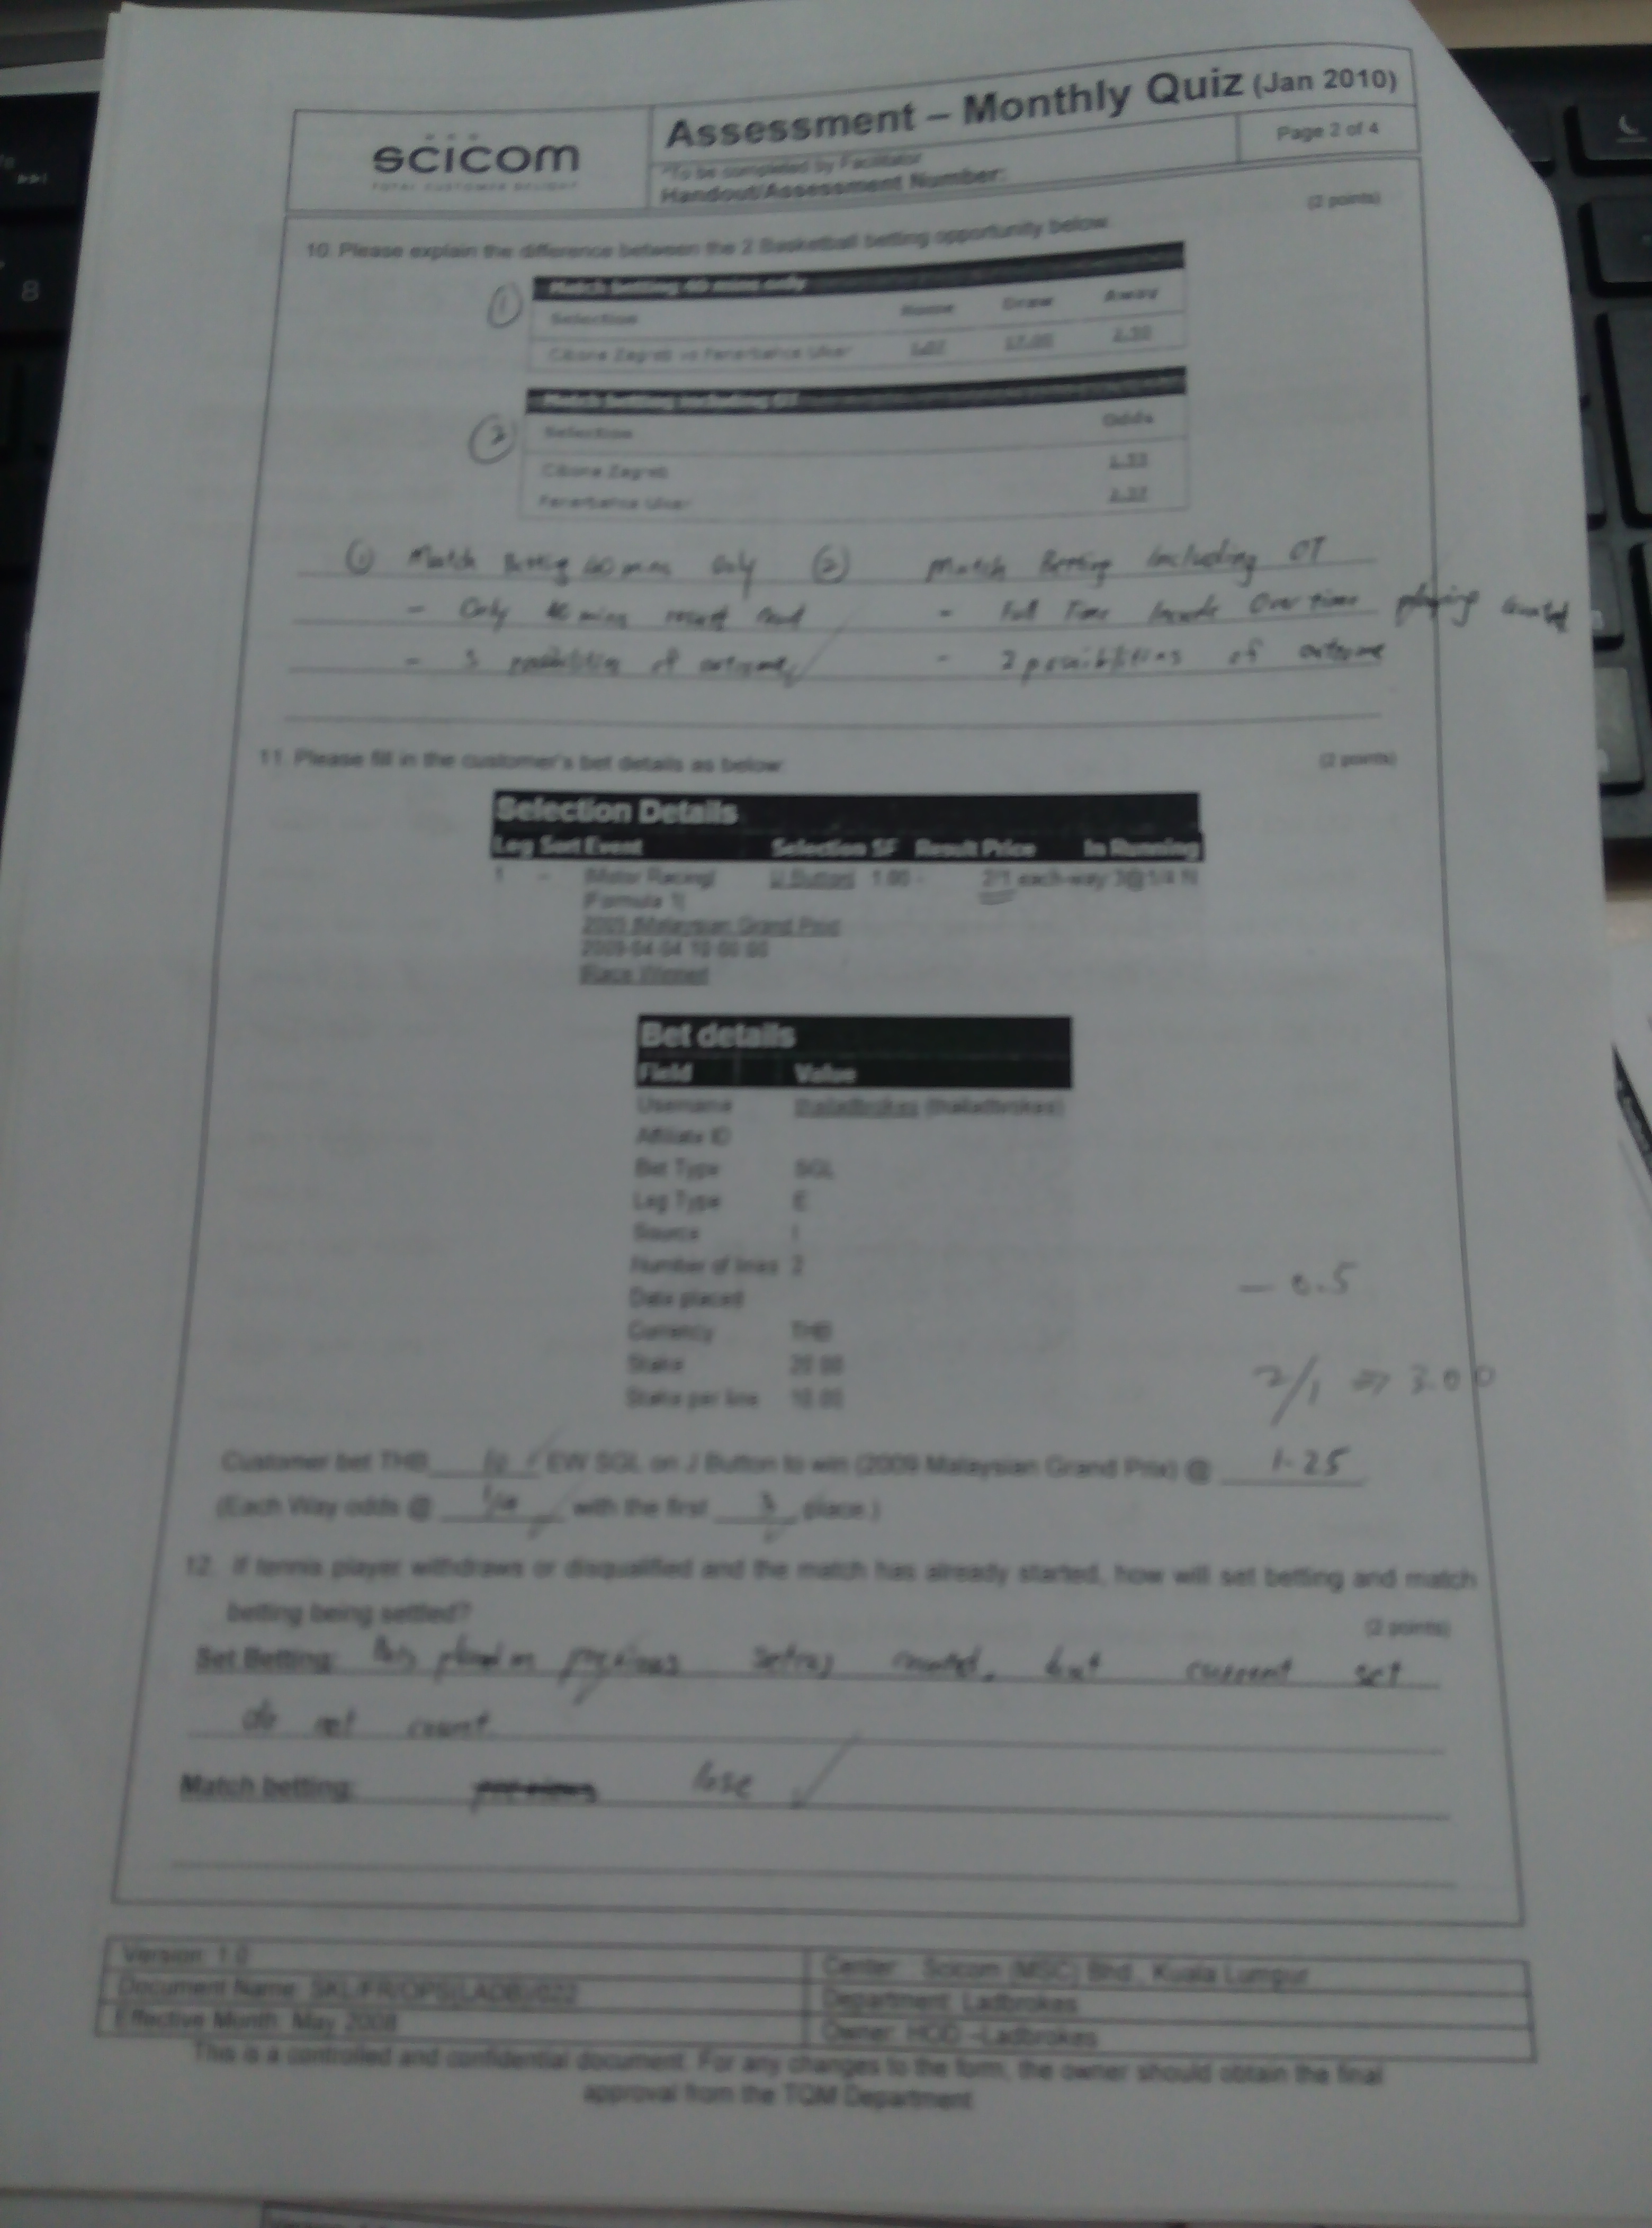 scicom
TOTAL CUSTOMER DELIGHT
Assessment – Monthly Quiz (Jan 2010)
Page 2 of 4
*To be completed by Facilitator
Handout/Assessment Number:
(2 points)
10. Please explain the difference between the 2 Basketball betting opportunity below:
① Match betting 40 mins only
Selection Home Draw Away
Cibona Zagreb vs Fenerbahce Ulker 17.00
② Match betting including OT
Selection Odds
Cibona Zagreb
Fenerbahce Ulker
① Match Betting 40 mins Only ② Match Betting Including OT
- Only 40 mins result count - Full Time Include Over time playing counted
- 3 possibilities of outcome - 2 possibilities of outcome
11. Please fill in the customer's bet details as below: (2 points)
Selection Details
Leg Sort Event Selection SF Result Price In Running
1 - |Motor Racing| |J Button| 1.00 - 2/1 each-way 3@1/4 N
|Formula 1|
2009 |Malaysian Grand Prix|
2009-04-04 10:00:00
|Race Winner|
Bet details
Field Value
Username
Affiliate ID
Bet Type SGL
Leg Type E
Source I
Number of lines 2
Date placed
Currency THB
Stake 20.00
Stake per line 10.00
- 0.5
2/1 => 3.00
Customer bet THB 10 EW SGL on J Button to win (2009 Malaysian Grand Prix) @ 1.25
(Each Way odds @ 1/4 with the first 3 place.)
12. If tennis player withdraws or disqualified and the match has already started, how will set betting and match
betting being settled? (2 points)
Set Betting: Bets placed on previous counted, but current set
do not count
Match betting: previous lose
Version: 1.0
Document Name: SKL/FR/OPS(LADB)/022
Effective Month: May 2008
Center: Scicom (MSC) Bhd, Kuala Lumpur
Department: Ladbrokes
Owner: HOD -Ladbrokes
This is a controlled and confidential document. For any changes to the form, the owner should obtain the final
approval from the TQM Department